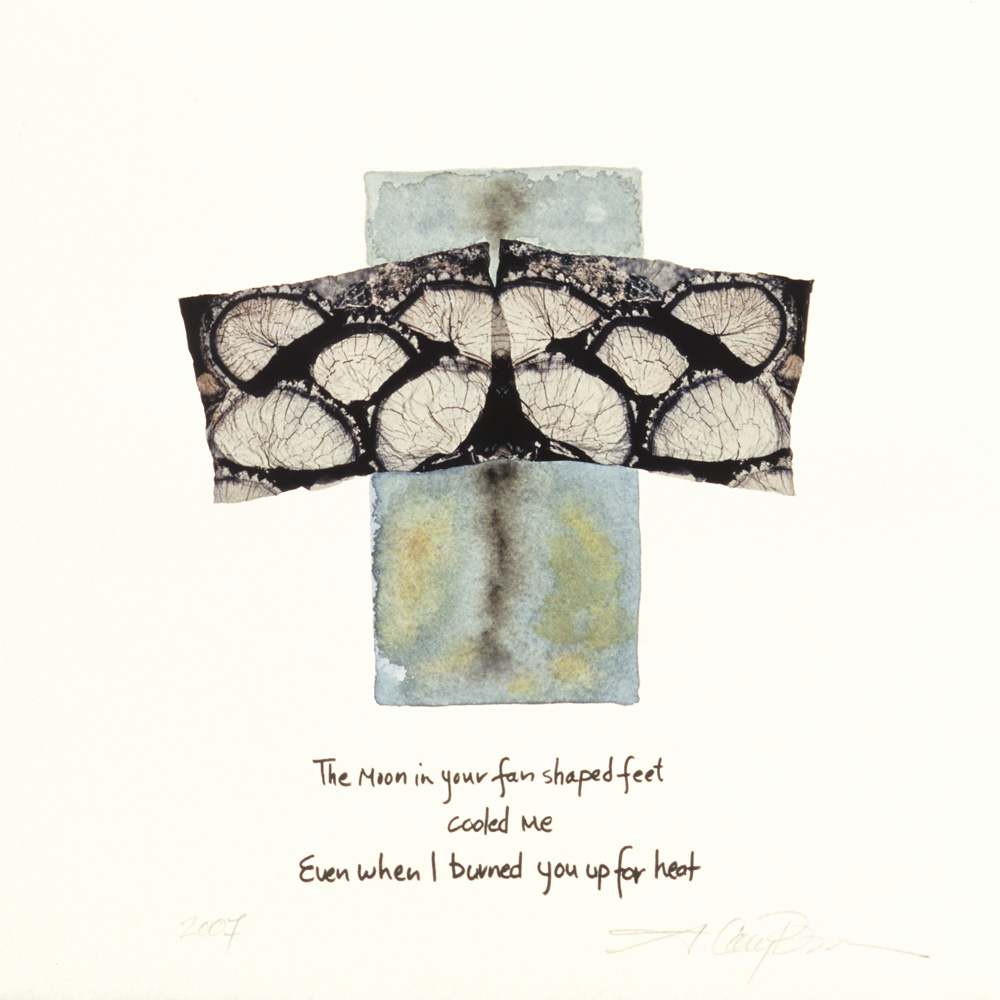 The Moon in your fan shaped feet
cooled me
Even when I burned you up for heat
2007